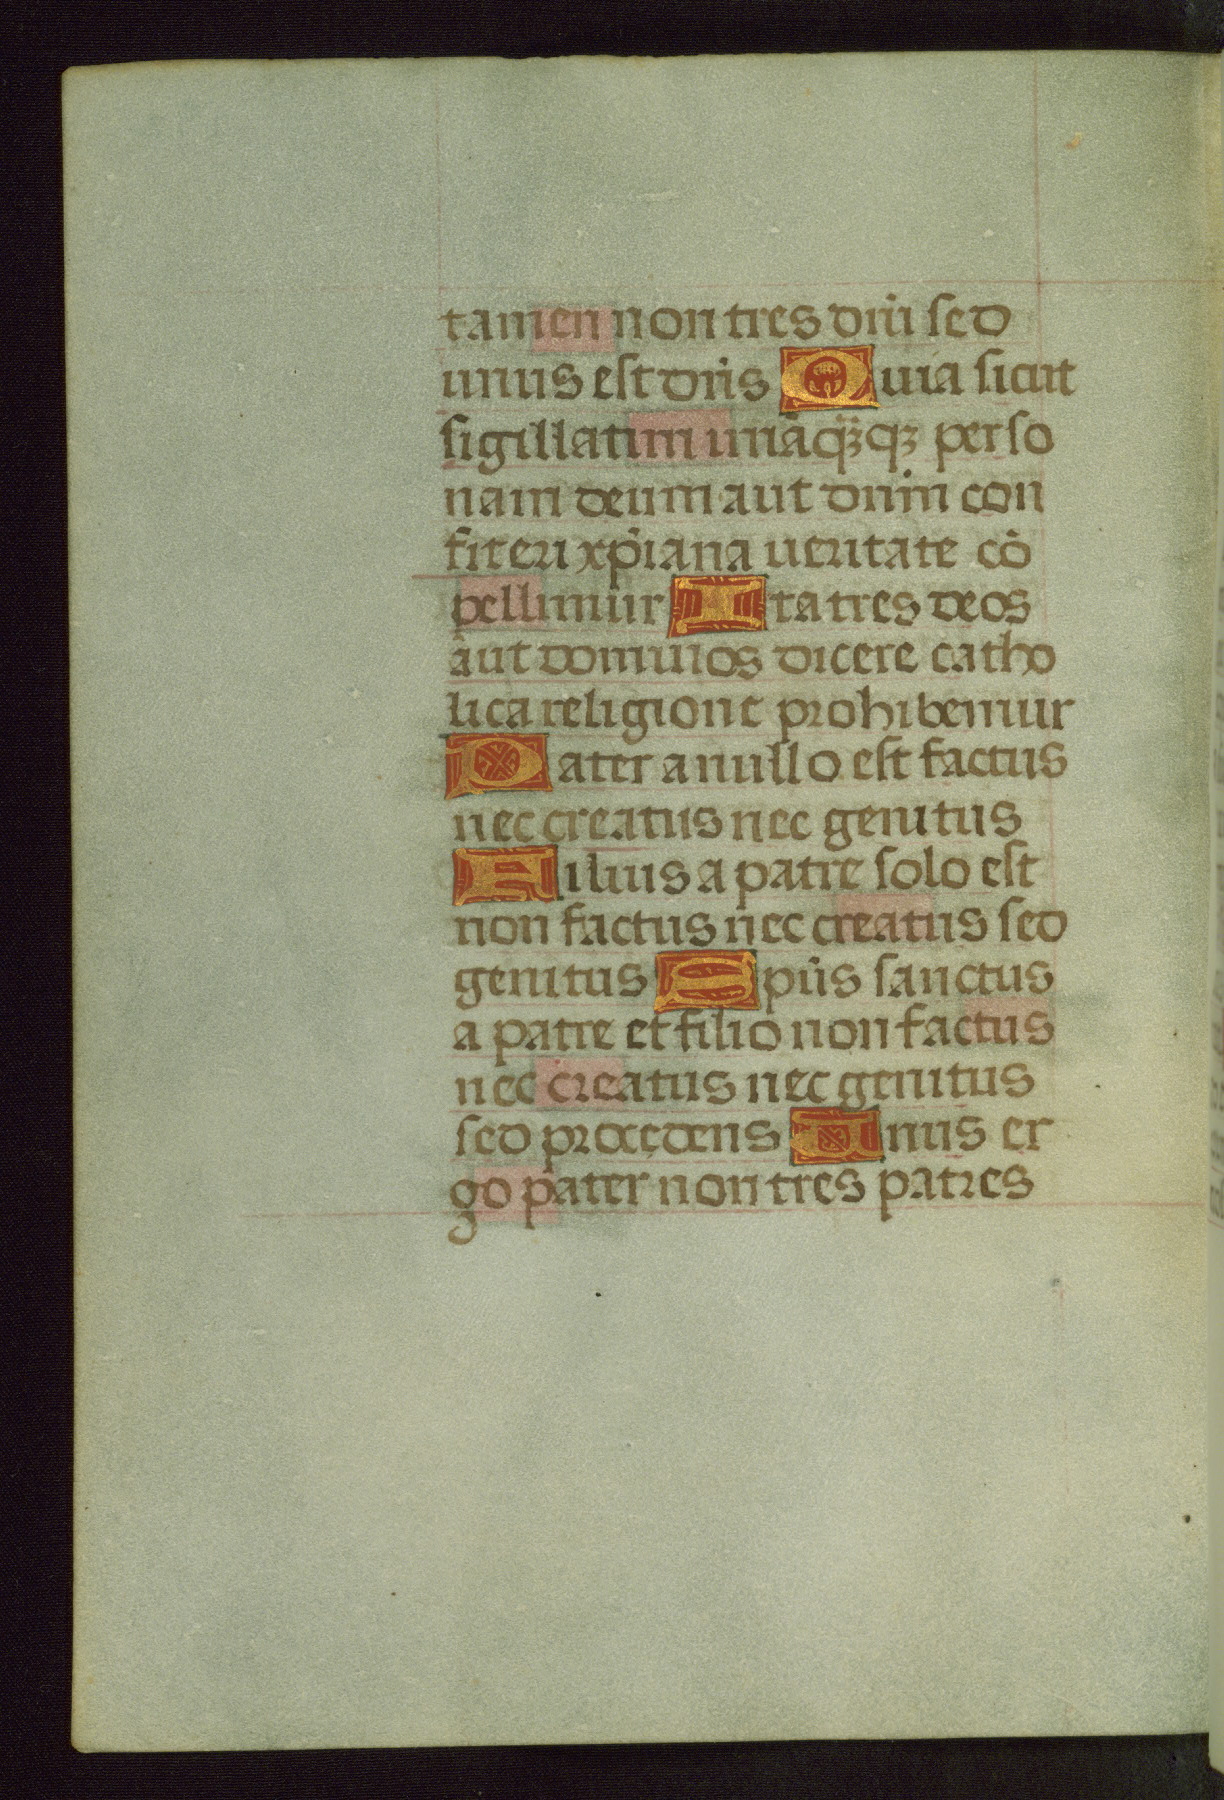 tamen non tres dñi sed
unus est dñs Quia sicut
sigillatim unãq̃ꝫqꝫ perso
nam deum aut dnm̄ con
fiteri xp̃iana ueritate cõ
pellimur Ita tres deos
aut dominos dicere catho
lica religione prohibemur
Pater a nullo est factus
nec creatus nec genitus
Filius a patre solo est
non factus nec creatus sed
genitus Spũs sanctus
a patre et filio non factus
nec creatus nec genitus
sed procedens Unus er
go pater non tres patres